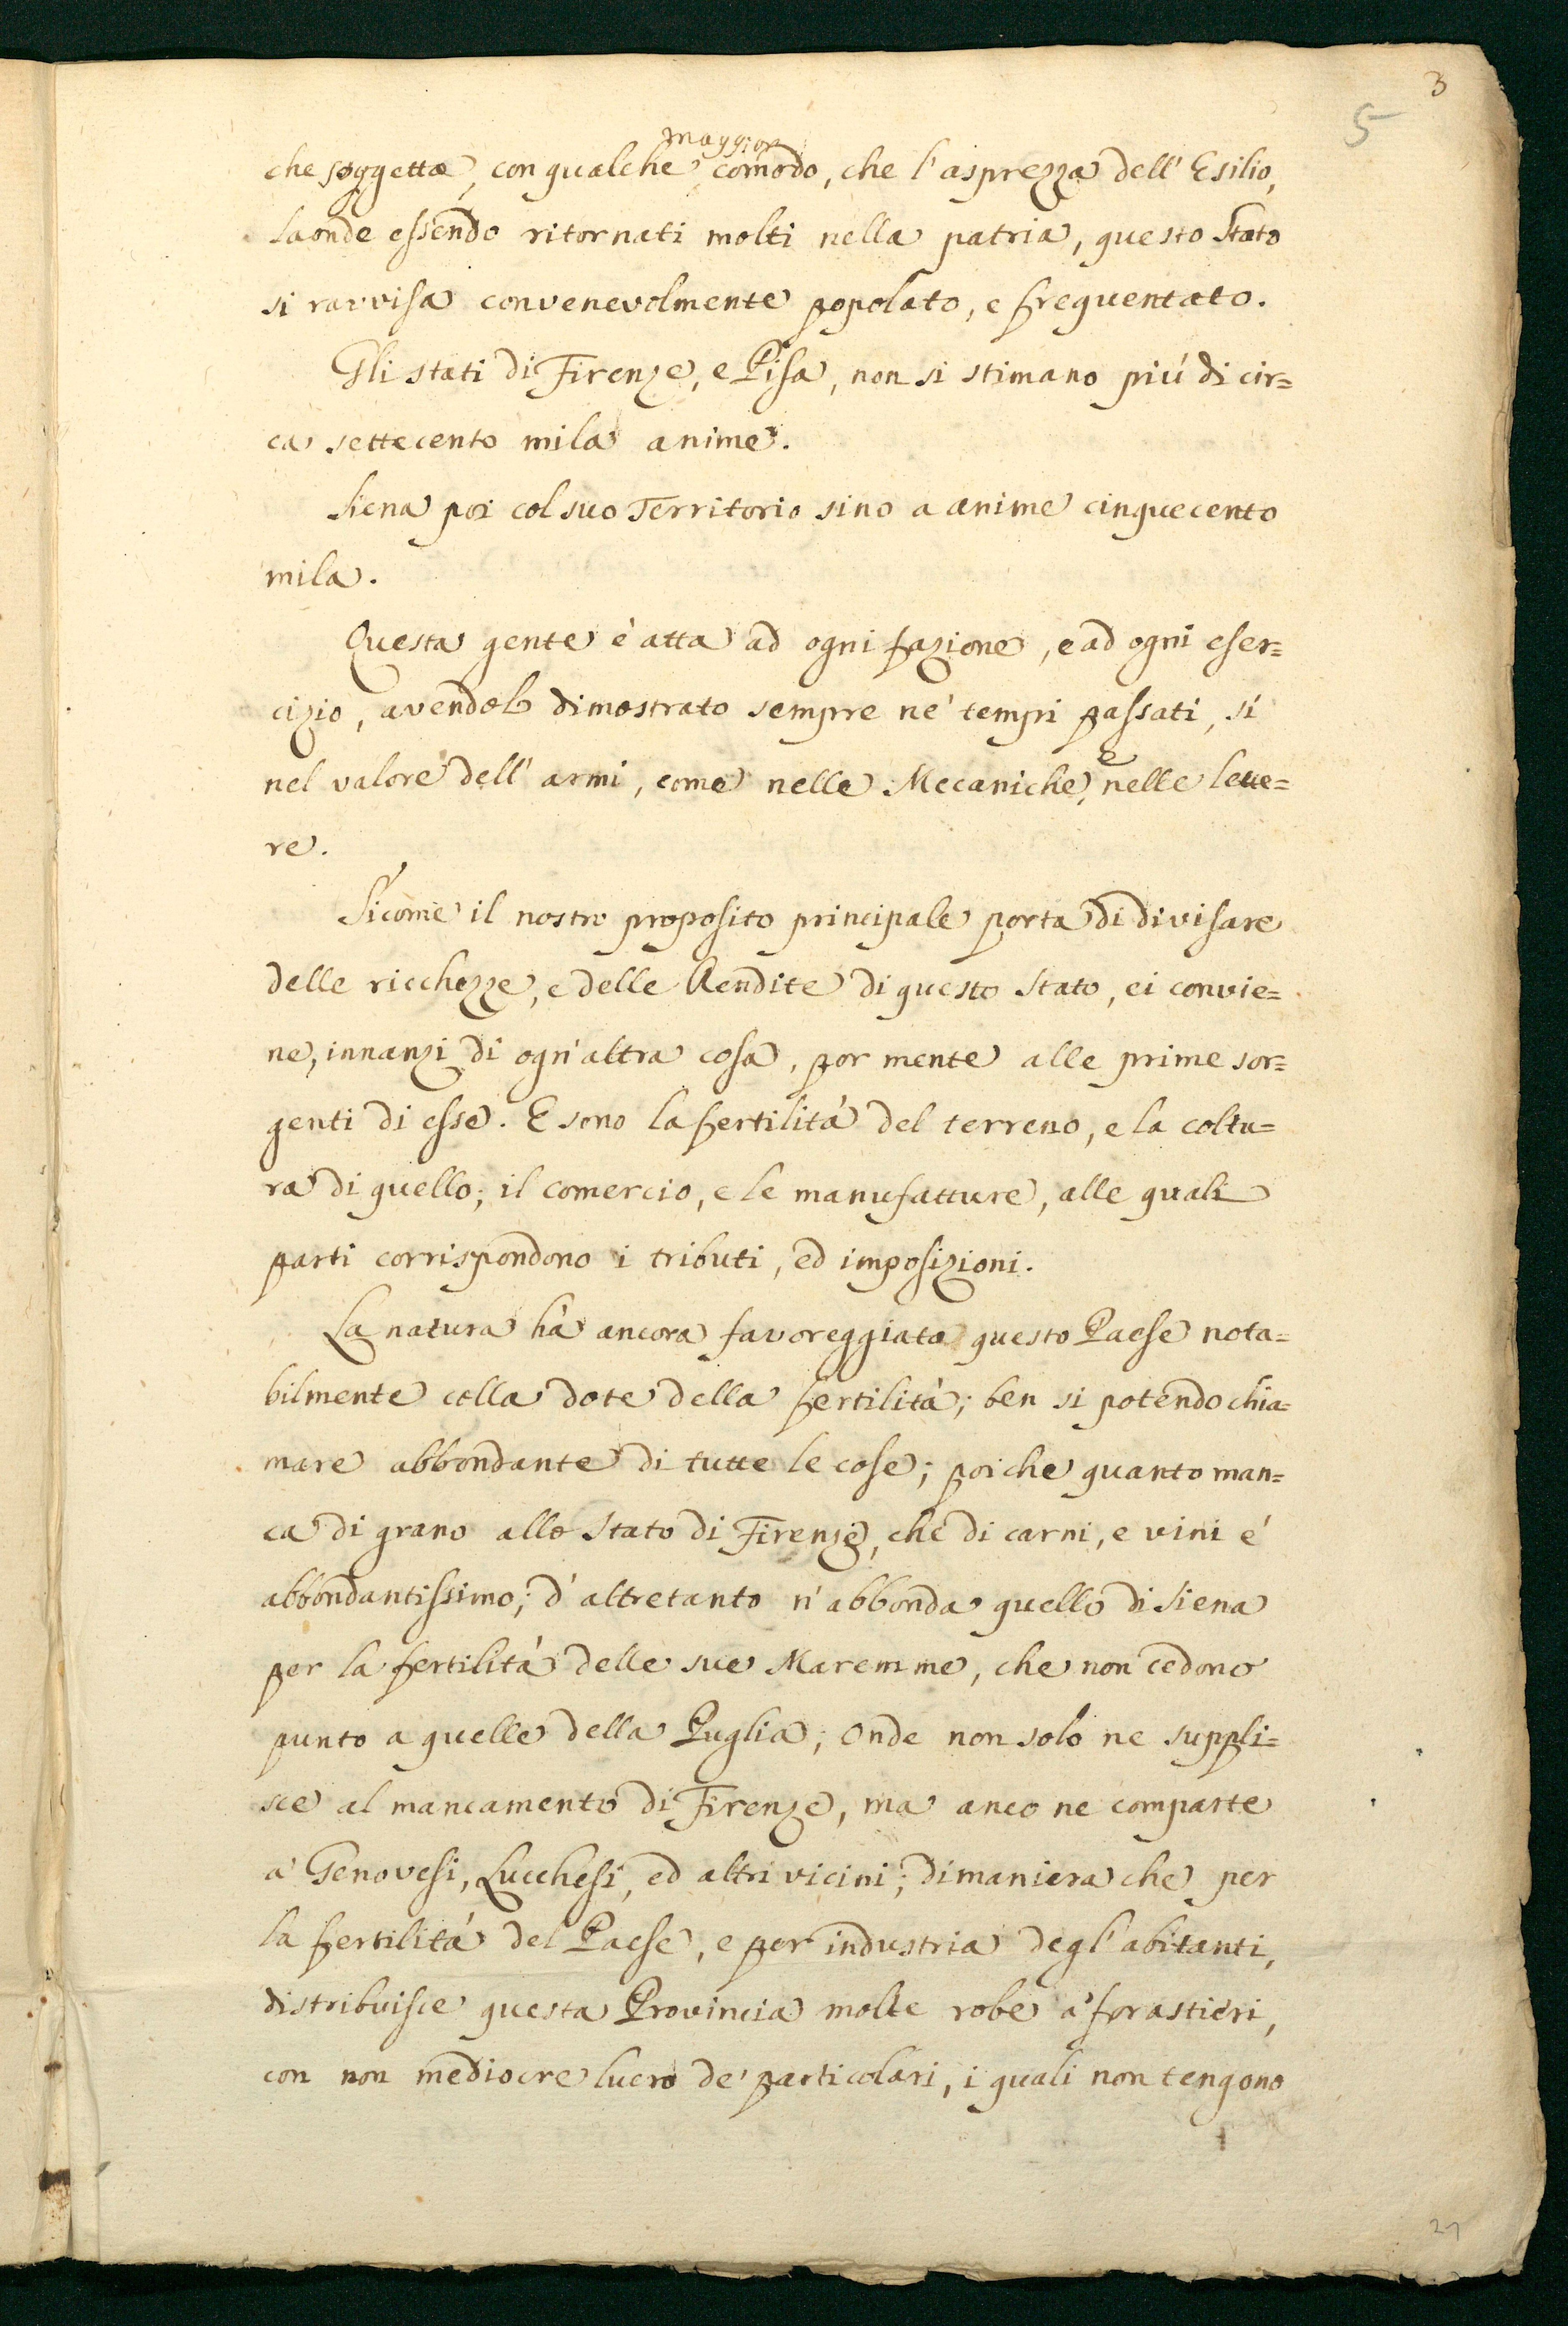 3
5
maggior
che soggetta, con qualche comodo, che l'asprezza dell'Esilio,
laonde essendo ritornati molti nella patria, questo Stato
si ravvisa convenevolmente popolato, e frequentato.
Gli stati di Firenze, e Pisa, non si stimano piú di cir=
ca settecento mila anime.
Siena poi col suo Territorio sino a anime cinquecento
mila.
Questa gente è atta ad ogni fazione, e ad ogni eser=
cizio, avendolo dimostrato sempre ne' tempi passati, sí
nel valore dell'armi, come nelle Mecaniche, e nelle lette=
re.
Sícome il nostro proposito principale porta di divisare
delle ricchezze, e delle Rendite di questo stato, ci convie=
ne, innanzi di ogn'altra cosa, por mente alle prime sor=
genti di esse. E sono la fertilitá del terreno, e la coltu=
ra di quello; il comercio, e le manufatture, alle quali
parti corrispondono i tributi, ed imposizioni.
La natura hà ancora favoreggiato questo Paese nota=
bilmente colla dote della fertilità; ben si potendo chia=
mare abbondante di tutte le cose; poiche quanto man=
ca di grano allo stato di Firenze, che di carni, e vini é
abbondantissimo; d'altretanto n'abbonda quello di Siena
per la fertilità delle sue Maremme, che non cedono
punto a quelle della Puglia; onde non solo ne suppli=
sce al mancamento di Firenze, ma anco ne comparte
a' Genovesi, Lucchesi, ed altri vicini; dimaniera che per
la fertilitá del Paese, e per industria degl'abitanti,
distribuisce questa Provincia molte robe a' forastieri,
con non mediocre lucro de' particolari, i quali non tengono
27